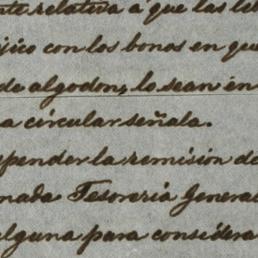 nte relativa á que las le
jico con los bonos en que
de algodon, lo sean en
a circular señala.
pender la remision de
nada Tesoreria General
alguna para considera